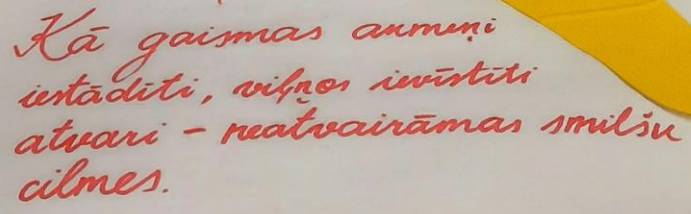 Kā gaismas akmeņi
iestādīti, viļņos ievīstīti
atvari - neatvairāmas smilšu
cilmes.